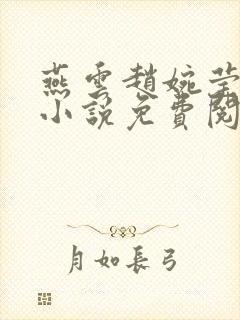 燕雲趙婉瑩
小說免費閱
月如長弓